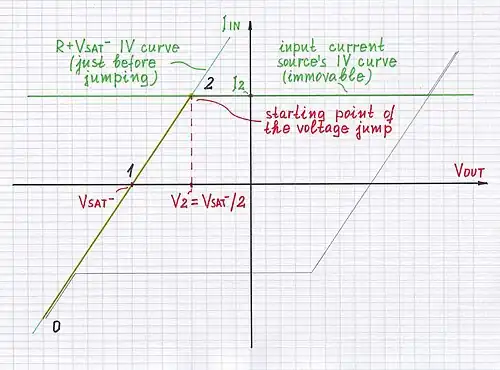 IIN
R+VSAT⁻ IV curve
(just before
jumping)
input current
source's IV curve
(immovable)
2
I2
starting point of
the voltage jump
1
VSAT⁻
V2=VSAT⁻/2
VOUT
0